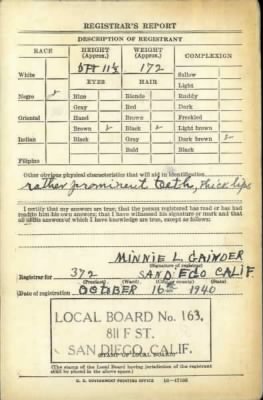 REGISTRAR'S REPORT
DESCRIPTION OF REGISTRANT
RACE
HEIGHT (Approx.)
WEIGHT (Approx.)
COMPLEXION
5 FT 11½
172
White
Sallow
EYES
HAIR
Light
Negro ✓
Blue
Blonde
Ruddy
Gray
Red
Dark
Oriental
Hazel
Brown
Freckled
Brown ✓
Black ✓
Light brown
Indian
Black
Gray
Dark brown ✓
Bald
Black
Filipino
Other obvious physical characteristics that will aid in identification
rather prominent teeth, thick lips
I certify that my answers are true; that the person registered has read or has had
read to him his own answers; that I have witnessed his signature or mark and that
all of his answers of which I have knowledge are true, except as follows:
MINNIE L. GAINDER
(Signature of registrar)
Registrar for 372 SAN DIEGO CALIF.
(Precinct) (Ward) (City or county) (State)
Date of registration OCTOBER 16th 1940
LOCAL BOARD No. 163,
811 F ST.
SAN DIEGO, CALIF.
(STAMP OF LOCAL BOARD)
(The stamp of the Local Board having jurisdiction of the registrant
shall be placed in the above space.)
U. S. GOVERNMENT PRINTING OFFICE 16—17105